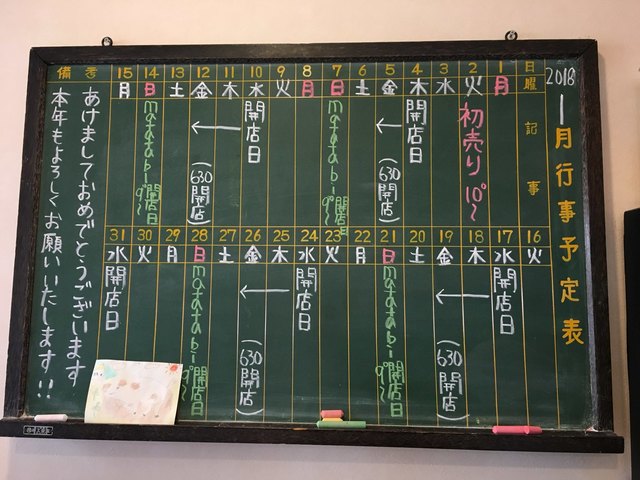 2018
1月行事予定表
日 曜 記事
1 月
2 火 初売り 10°〜
3 水
4 木 開店日
5 金 ← (630開店)
6 土
7 日 matatabi開店日 9°〜
8 月
9 火
10 水 開店日
11 木 ←
12 金 (630開店)
13 土
14 日 matatabi開店日 9°〜
15 月
16 火
17 水 開店日
18 木 ←
19 金 (630開店)
20 土
21 日 matatabi開店日 9°〜
22 月
23 火
24 水 開店日
25 木 ←
26 金 (630開店)
27 土
28 日 matatabi開店日 9°〜
29 月
30 火
31 水 開店日
備考
あけましておめでとうございます
本年もよろしくお願いいたします!!